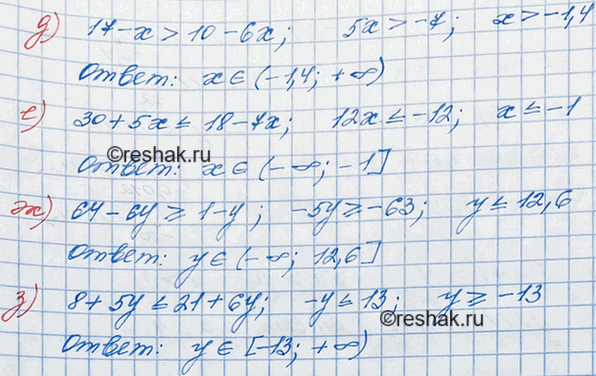 д) 17-x > 10-6x; 5x > -7; x > -1,4
Ответ: x ∈ (-1,4; +∞)
е) 30+5x ≤ 18-7x; 12x ≤ -12; x ≤ -1
©reshak.ru
Ответ: x ∈ (-∞; -1]
ж) 64-6y ≥ 1-y; -5y ≥ -63; y ≤ 12,6
Ответ: y ∈ (-∞; 12,6]
з) 8+5y ≤ 21+6y; -y ≤ 13; y ≥ -13
©reshak.ru
Ответ: y ∈ [-13; +∞)